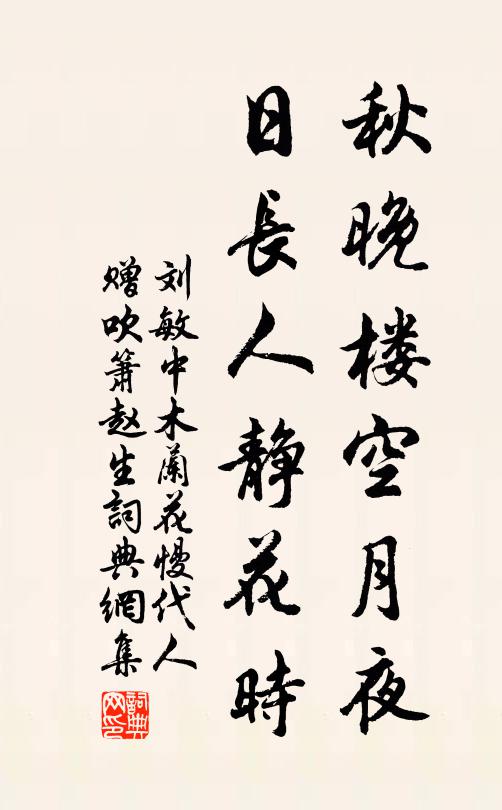 秋晚楼空月夜
日長人靜花時
刘敏中木蘭花慢代人
赠吹簫赵生詞典網集
詞典
网印